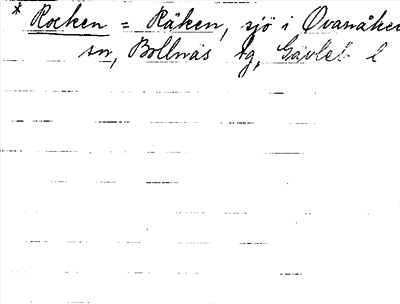 * Rocken = Råken, sjö i Ovanåker
sn, Bollnäs tg, Gävleb l